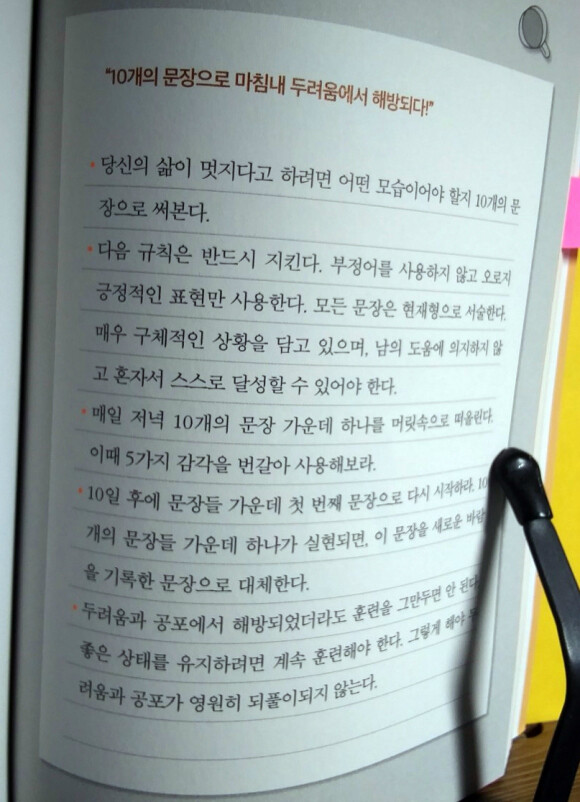 “10개의 문장으로 마침내 두려움에서 해방되다!”
• 당신의 삶이 멋지다고 하려면 어떤 모습이어야 할지 10개의 문
장으로 써본다.
• 다음 규칙은 반드시 지킨다. 부정어를 사용하지 않고 오로지
긍정적인 표현만 사용한다. 모든 문장은 현재형으로 서술한다.
매우 구체적인 상황을 담고 있으며, 남의 도움에 의지하지 않
고 혼자서 스스로 달성할 수 있어야 한다.
• 매일 저녁 10개의 문장 가운데 하나를 머릿속으로 떠올린다.
이때 5가지 감각을 번갈아 사용해보라.
• 10일 후에 문장들 가운데 첫 번째 문장으로 다시 시작하라. 10
개의 문장들 가운데 하나가 실현되면, 이 문장을 새로운
을 기록한 문장으로 대체한다.
• 두려움과 공포에서 해방되었더라도 훈련을 그만두면 안 된다.
좋은 상태를 유지하려면 계속 훈련해야 한다. 그렇게 해야
려움과 공포가 영원히 되풀이되지 않는다.